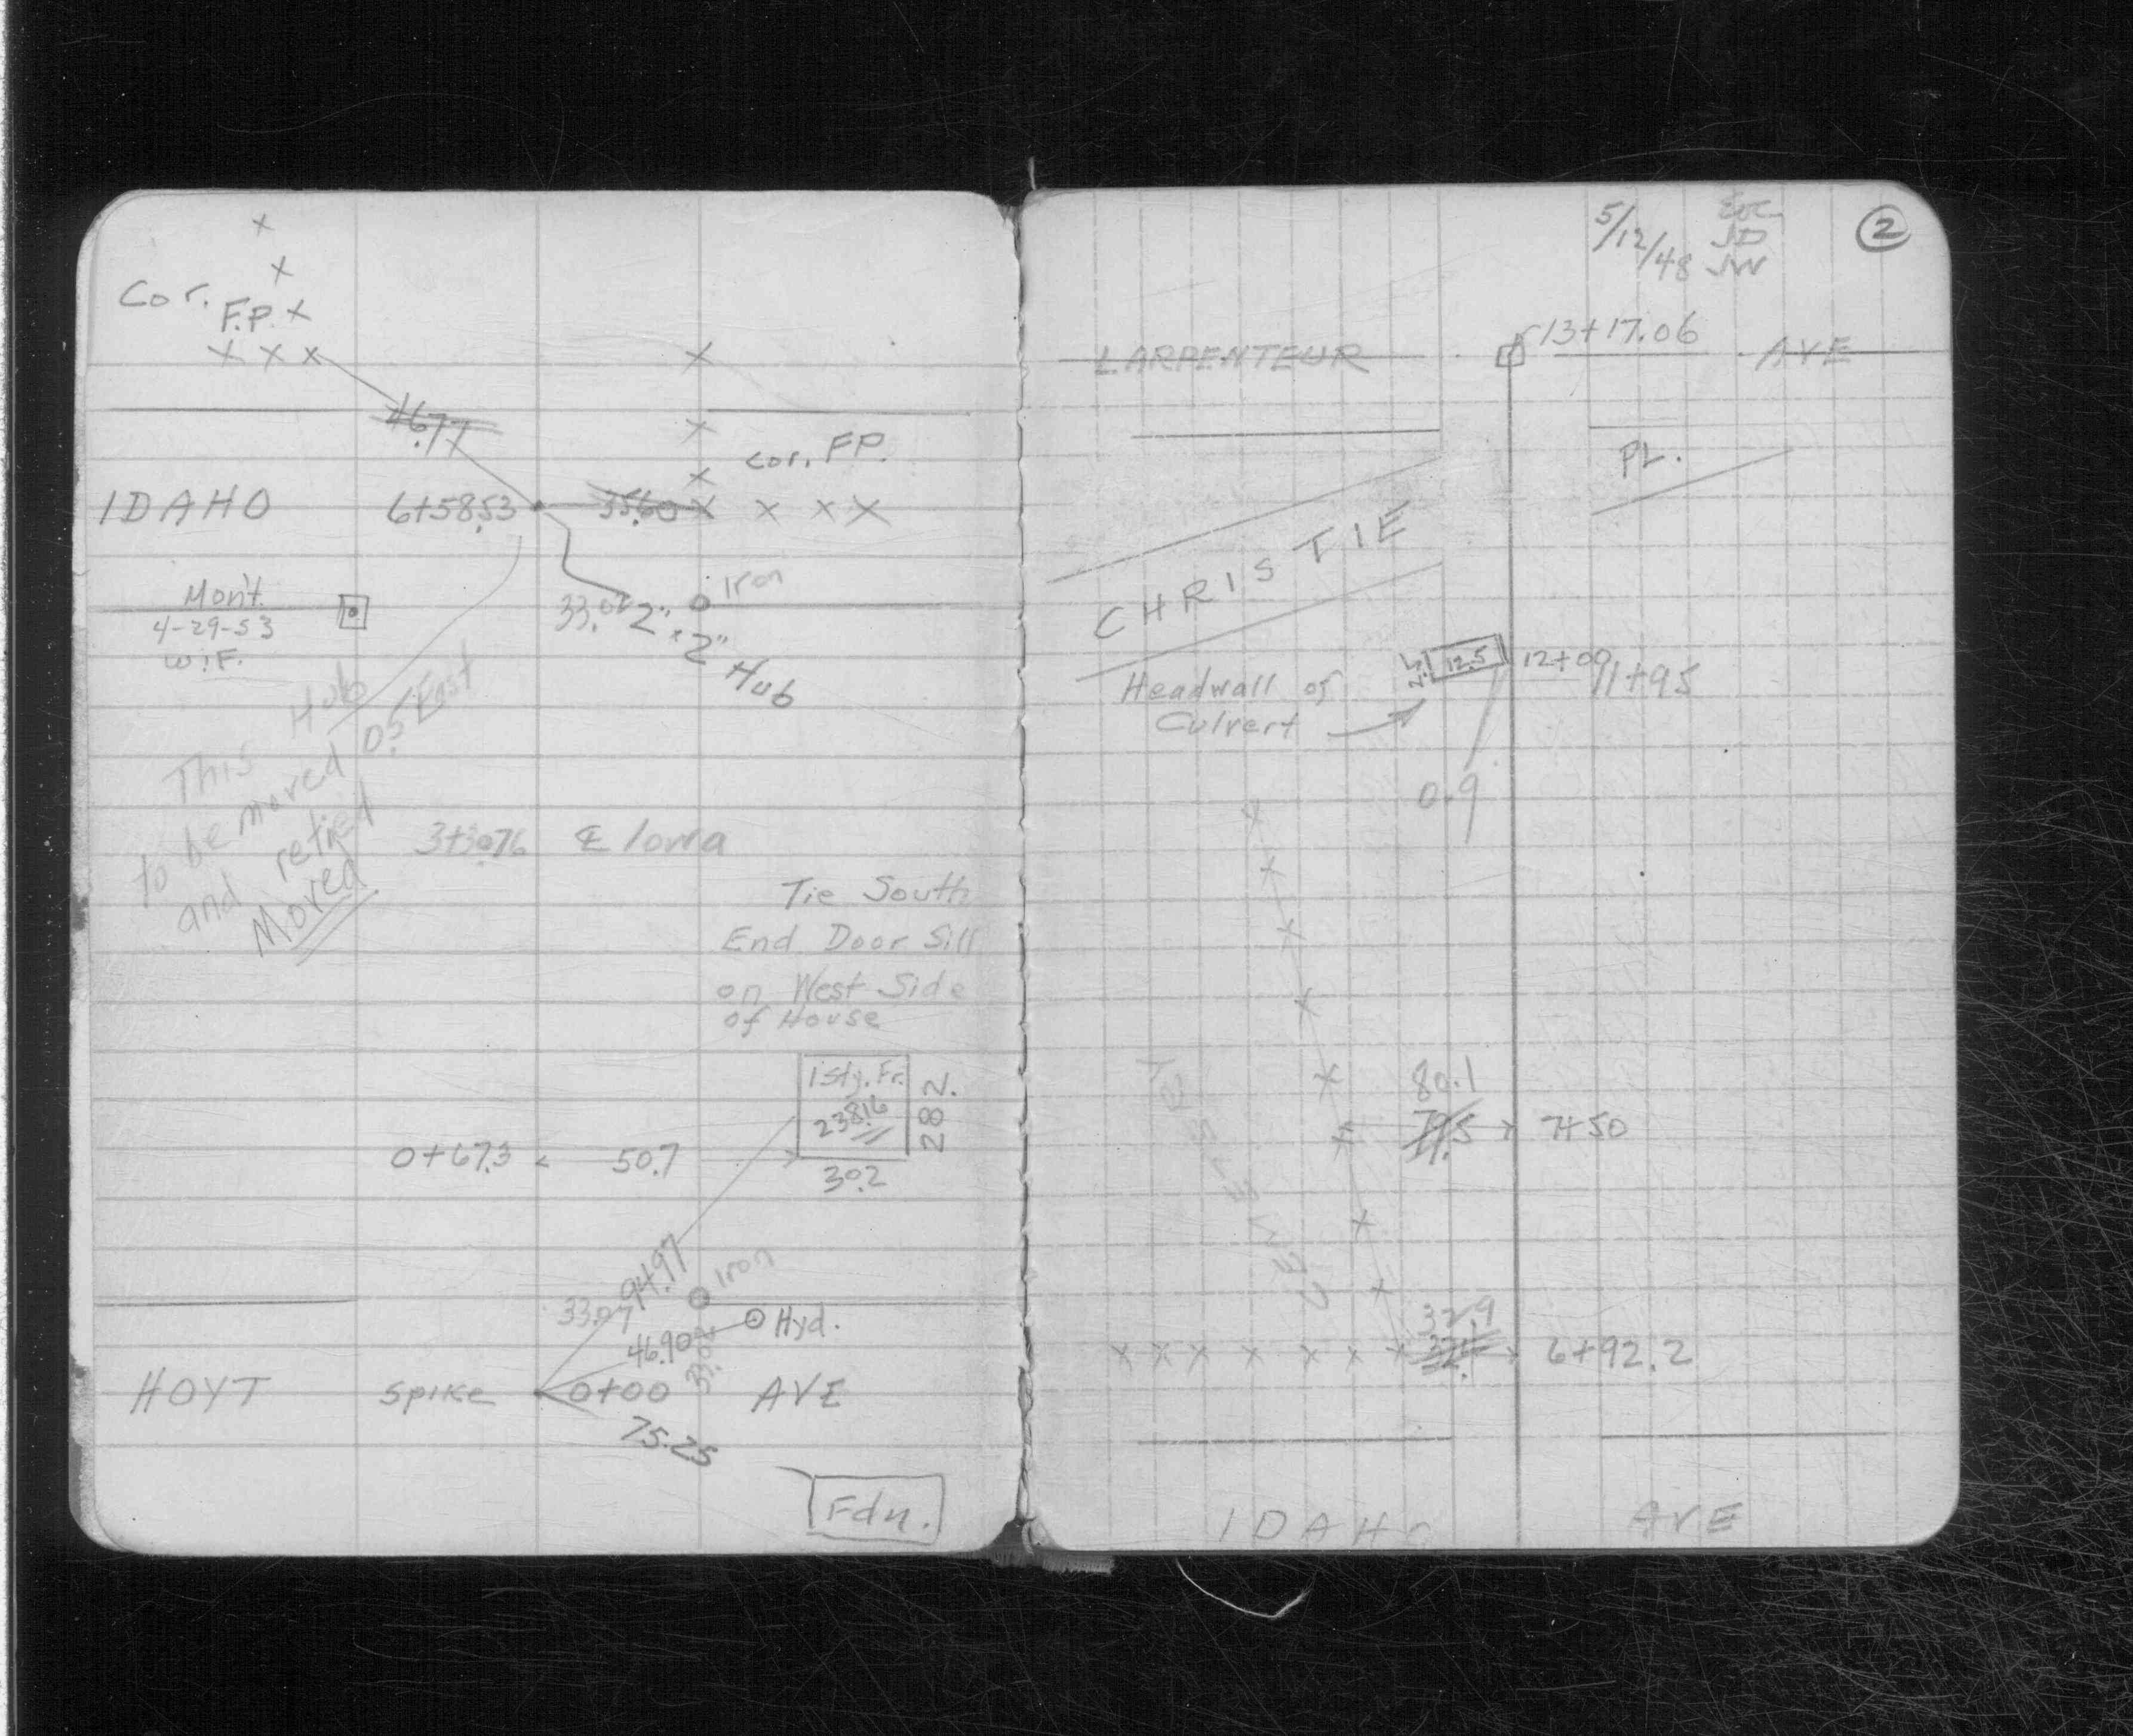 Cor.
F.P.
46.77
cor. FP.
IDAHO 6+58.53 35.60
Mon't.
4-29-53
W.F.
Iron
33.02
2" x 2" Hub
This Hub
to be moved 0.5 East
and retied
Moved
3+30.76 ℄ Iowa
Tie South
End Door Sill
on West Side
of House
1 Sty. Fr.
238.16
28.2
0+67.3 50.7
30.2
94.97
Iron
33.07
46.90 Hyd.
33.02
HOYT Spike 0+00 AVE
75.25
Fdn.
5/12/48
JD
JW
2
13+17.06
LARPENTEUR AVE
PL.
CHRISTIE
12.5 12+00 11+95
Headwall of
Culvert
0.9
80.1
79.5 7+50
32.9
6+92.2
IDAHO AVE